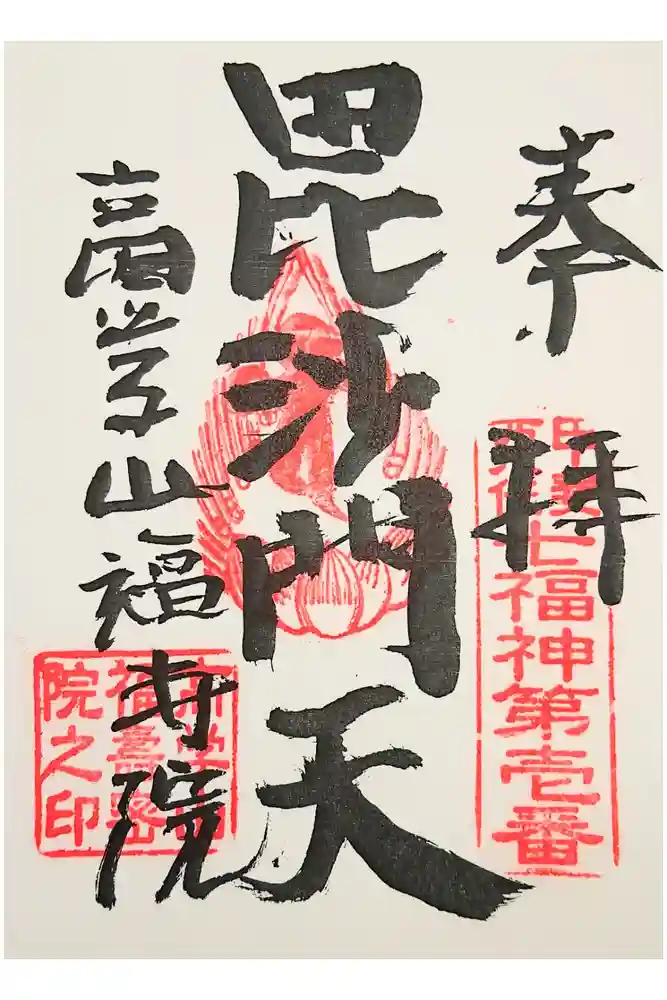 奉拝
七福神第壱番
毘沙門天
高学山福寿院
福壽密
院之印